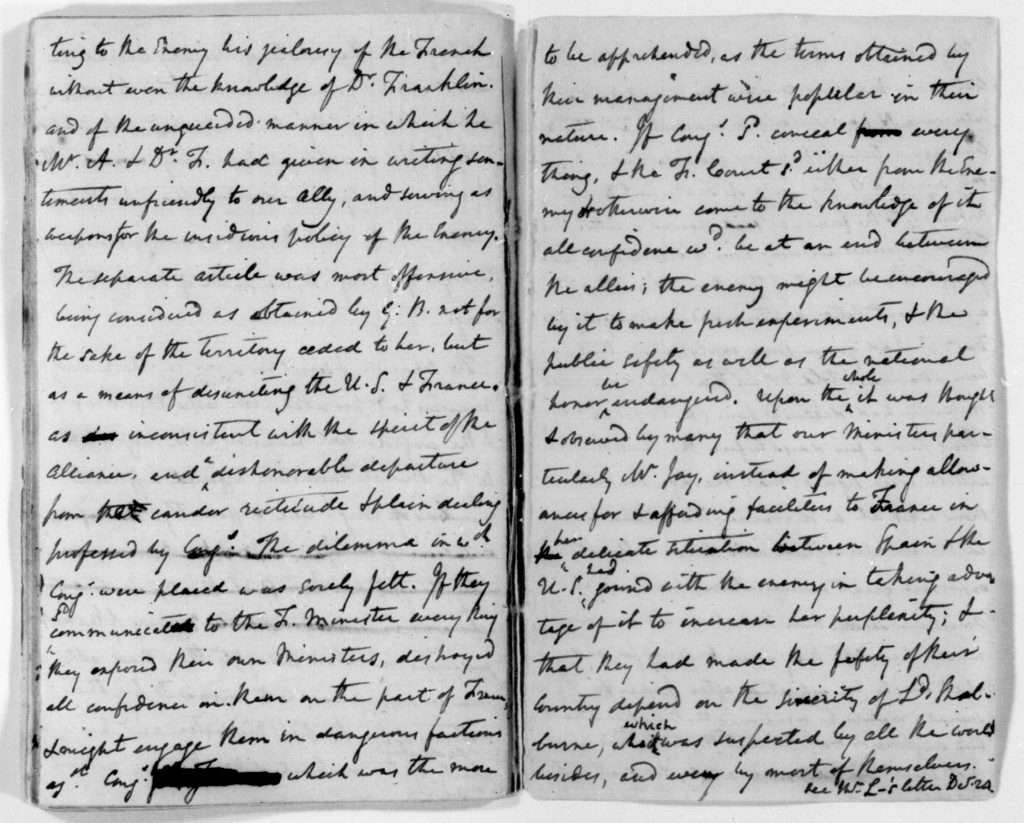 ting to the Enemy his jealousy of the French
without even the knowledge of Dr. Franklin.
and of the unguarded manner in which he
Mr. A. & Dr. F. had given in writing sen-
timents unfriendly to our Ally, and serving as
weapons for the insidious policy of the Enemy.
The separate article was most offensive,
being considered as obtained by G: B. not for
the sake of the territory ceded to her, but
as a means of disuniting the U. S. & France,
as inconsistent with the spirit of the
Alliance, and a dishonorable departure
from candor rectitude & plain dealing
professed by Congs. The dilemma in wch
Congs. were placed was sorely felt. If they
sd communicate to the F. Minister every thing
they exposed their own Ministers, destroyed
all confidence in them on the part of France,
& might engage them in dangerous factions
agst. Congs. which was the more
to be apprehended, as the terms obtained by
their management were popular in their
nature. If Congs. sd. conceal every
thing, & the Fr. Court sd either from the Ene-
my or otherwise come to the knowledge of it
all confidence wd. be at an end between
the allies; the enemy might be encouraged
by it to make fresh experiments, & the
public safety as well as the national
honor be endangered. Upon the whole it was thought
& observed by many that our Ministers par-
ticularly Mr. Jay, instead of making allow-
ances for & affording facilities to France in
her delicate situation between Spain & the
U. S. had joined with the enemy in taking advan
tage of it to increase her perplexity; &
that they had made the safety of their
Country depend on the sincerity of Ld. Shel-
burne, which was suspected by all the world
besides, and even by most of themselves.
see Mr. L—'s letter Dec. 24